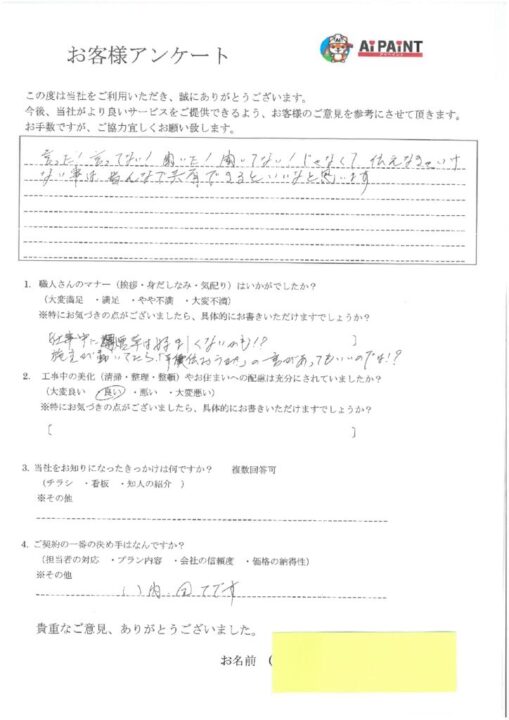 お客様アンケート
AI PAINT
この度は当社をご利用いただき、誠にありがとうございます。
今後、当社がより良いサービスをご提供できるよう、お客様のご意見を参考にさせて頂きます。
お手数ですが、ご協力宜しくお願い致します。
言った!言ってない!聞いた!聞いてない!じゃなくて伝えなきゃいけ
ない事は皆んなで共有できるといいなと思います
1. 職人さんのマナー(挨拶・身だしなみ・気配り)はいかがでしたか?
(大変満足 ・満足 ・やや不満 ・大変不満)
※特にお気づきの点がございましたら、具体的にお書きいただけますでしょうか?
仕事中に は好ましくないのも!? ]
施主が動いてたら「手伝おうか」の一言があってもいいのでは!?
2. 工事中の美化(清掃・整理・整頓)やお住まいへの配慮は充分にされていましたか?
(大変良い ・良い ・悪い ・大変悪い)
※特にお気づきの点がございましたら、具体的にお書きいただけますでしょうか?
[ ]
3. 当社をお知りになったきっかけは何ですか? 複数回答可
(チラシ ・看板 ・知人の紹介 )
※その他
4. ご契約の一番の決め手はなんですか?
(担当者の対応 ・プラン内容 ・会社の信頼度 ・価格の納得性)
※その他
です
貴重なご意見、ありがとうございました。
お名前 (